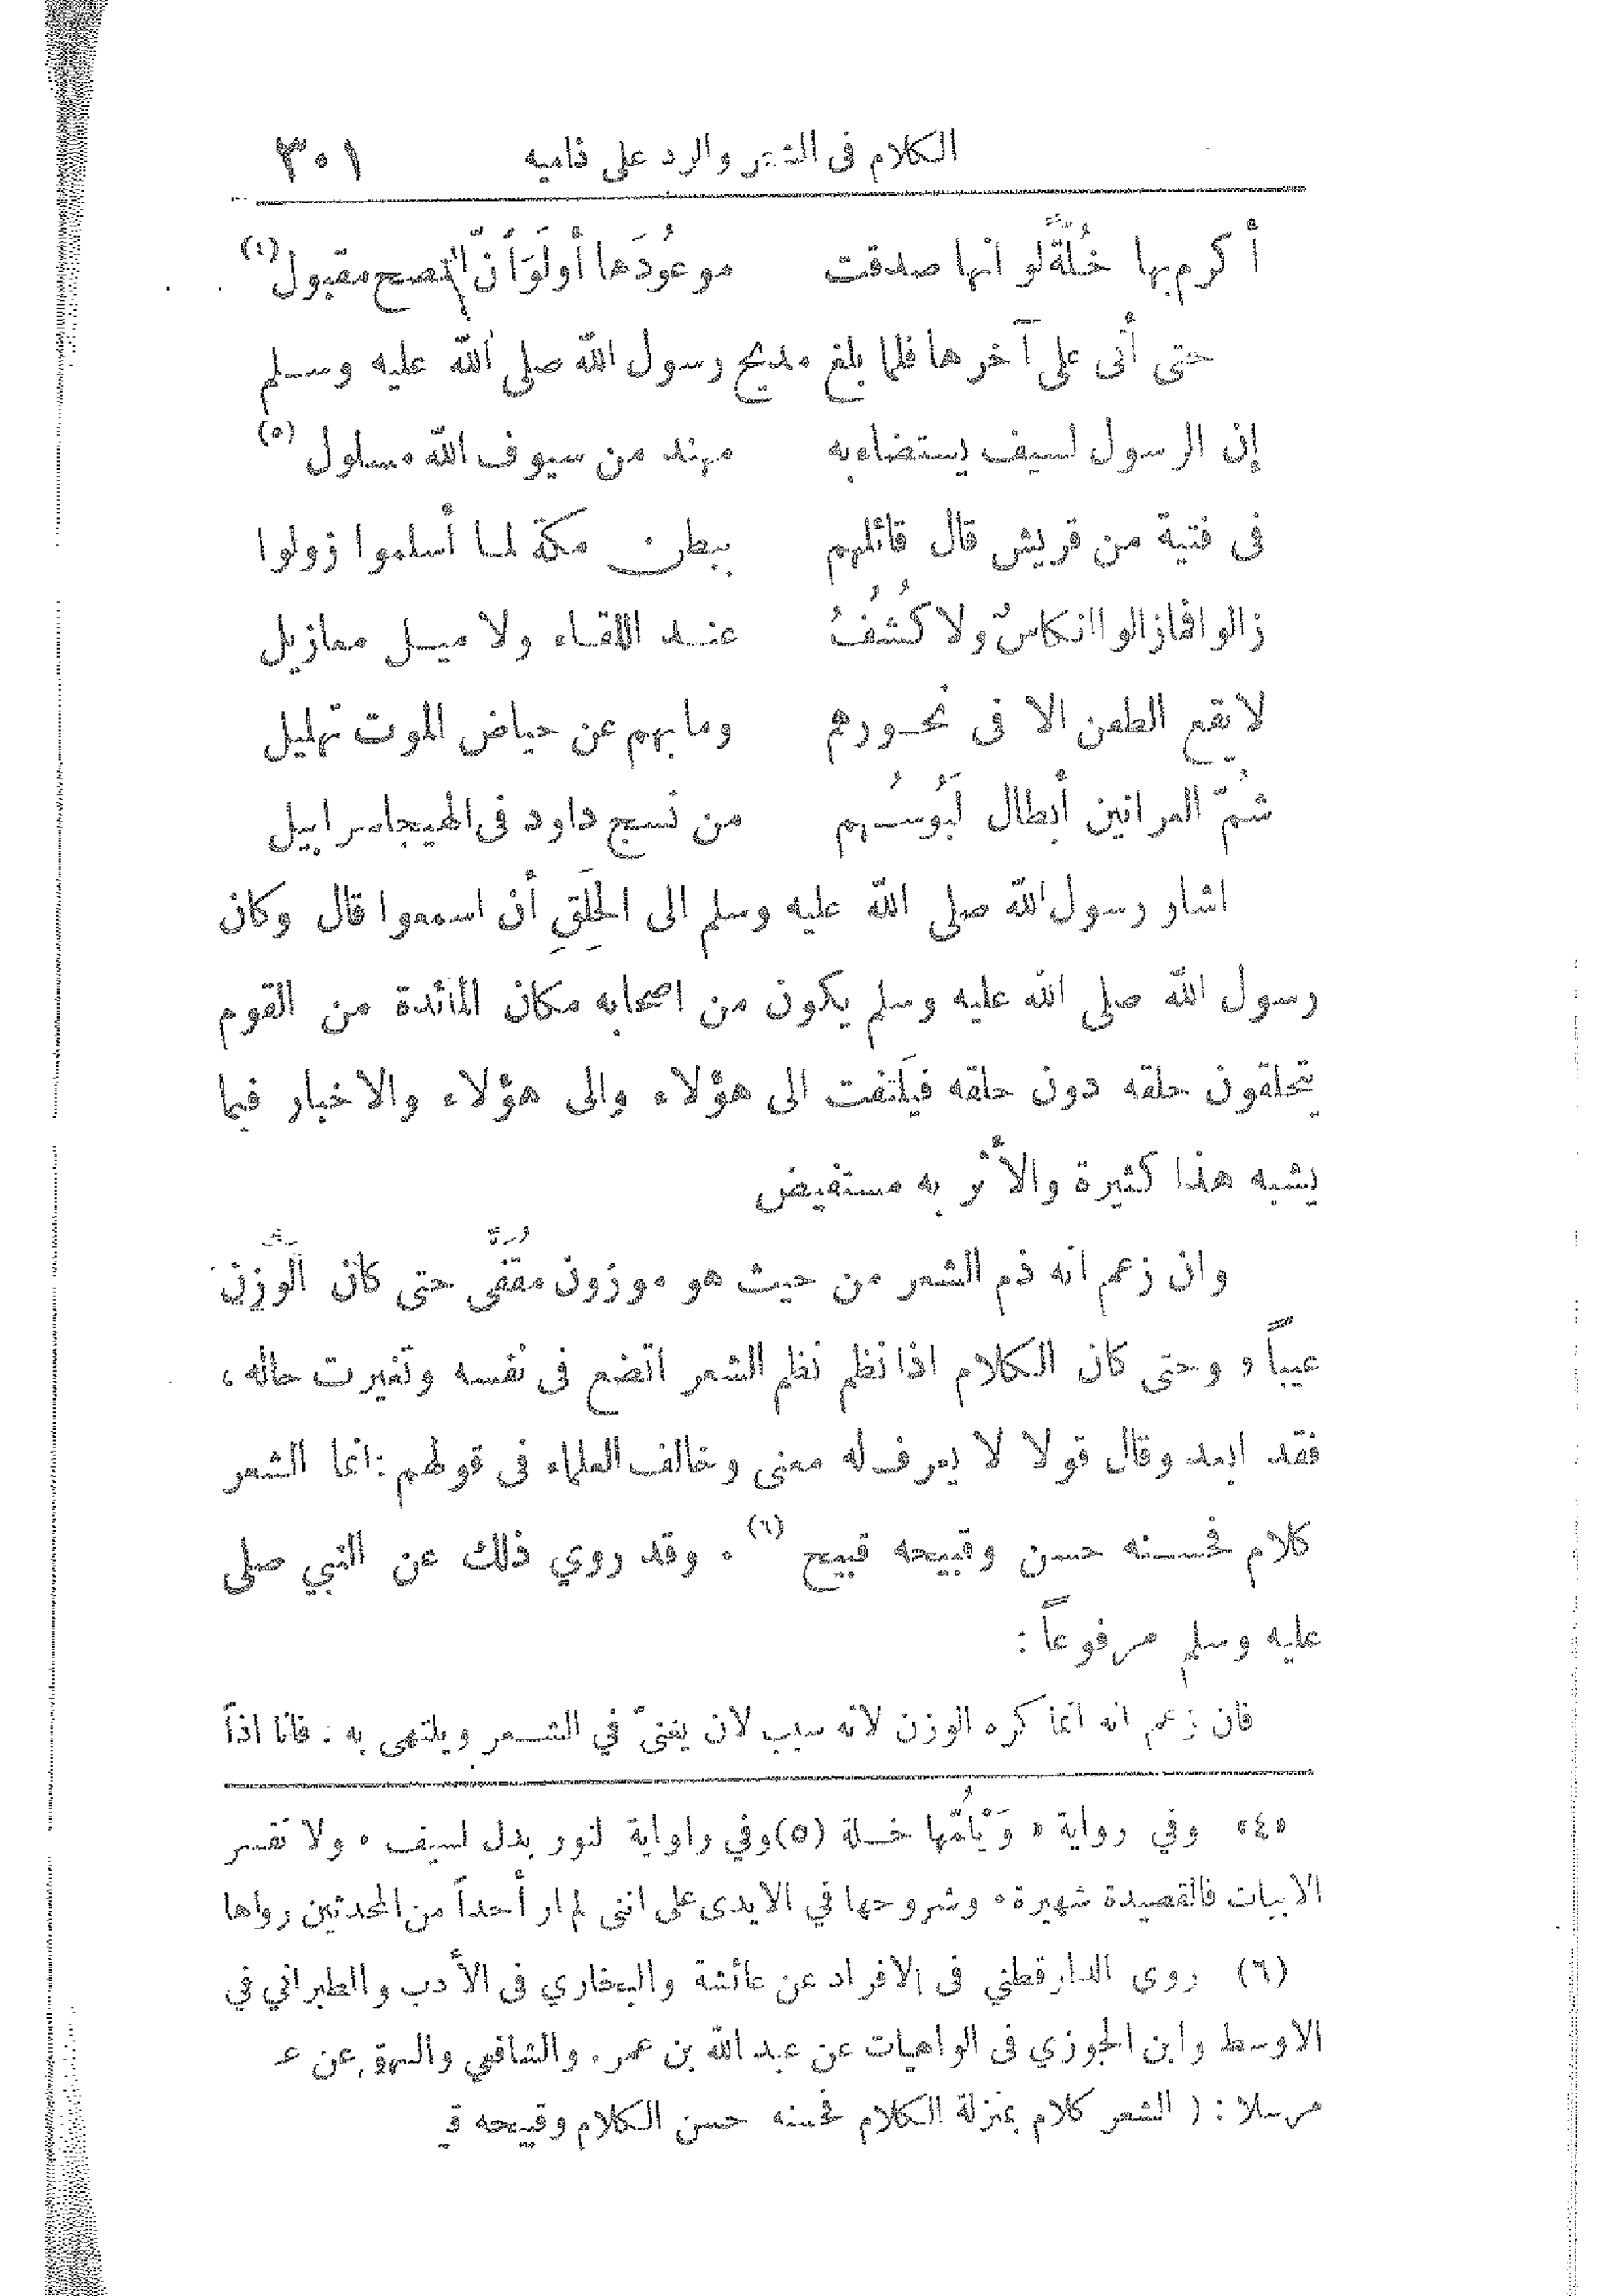 الكلام فى الشعر والرد على ذاميه ٣٠١
أكرم بها خُلَّةً لو انها صدقت موعُودَها أولَوَ أَنَّ النصح مقبول (٤)
حتى أتى على آخرها فلما بلغ مديح رسول الله صلى الله عليه وسلم
إن الرسول لسيف يستضاء به مهند من سيوف الله مسلول (٥)
فى فتية من قريش قال قائلهم ببطن مكة لما أسلموا زولوا
زالوا فما زالوا انكاسٌ ولا كُشُفُ عند اللقاء ولا ميل معازيل
لا يقع الطعن الا فى نحورهم وما بهم عن حياض الموت تهليل
شُمّ العرانين أبطال لَبُوسُهم من نسج داود فى الهيجا سرابيل
اشار رسول الله صلى الله عليه وسلم الى الحِلَقِ أن اسمعوا قال وكان
رسول الله صلى الله عليه وسلم يكون من اصحابه مكان المائدة من القوم
يتحلقون حلقه دون حلقه فيَلتفت الى هؤلاء وإلى هؤلاء والاخبار فيما
يشبه هذا كثيرة والأثر به مستفيض
وان زعم انه ذم الشعر من حيث هو موزون مقفًى حتى كان الوزن
عيباً، وحتى كان الكلام اذا نظم نظم الشعر اتضع فى نفسه وتغيرت حاله،
فقد ابعد وقال قولا لا يعرف له معنى وخالف العلماء فى قولهم: انما الشعر
كلام فحسنه حسن وقبيحه قبيح (٦). وقد روي ذلك عن النبي صلى
عليه وسلم مرفوعاً:
فان زعم انه انما كره الوزن لانه سبب لان يغنىّ في الشعر ويلتهى به: فانا اذاً
«٤» وفي رواية « وَيْلُمّها خلة (٥) وفي راواية لنور بدل لسيف ٠ ولا نفسر
الابيات فالقصيدة شهيرة ٠ وشروحها في الايدى على انني لم ار أحداً من المحدثين رواها
(٦) روى الدارقطني فى الافراد عن عائشة والبخاري فى الأدب والطبراني في
الاوسط وابن الجوزي فى الواهيات عن عبد الله بن عمر. والشافعي والبيهقي عن عـ
مرسلا: ( الشعر كلام بمنزلة الكلام فحسنه حسن الكلام وقبيحه قـ